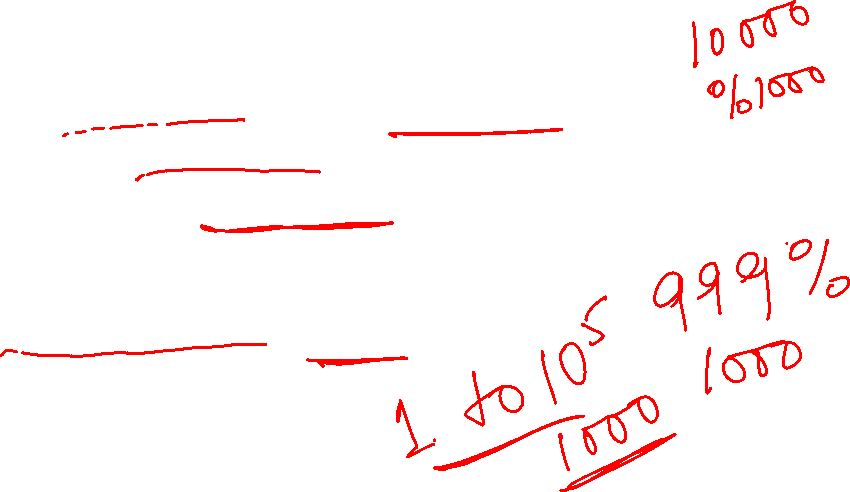 10000
%1000
1 to 10^5 999%
1000 1000